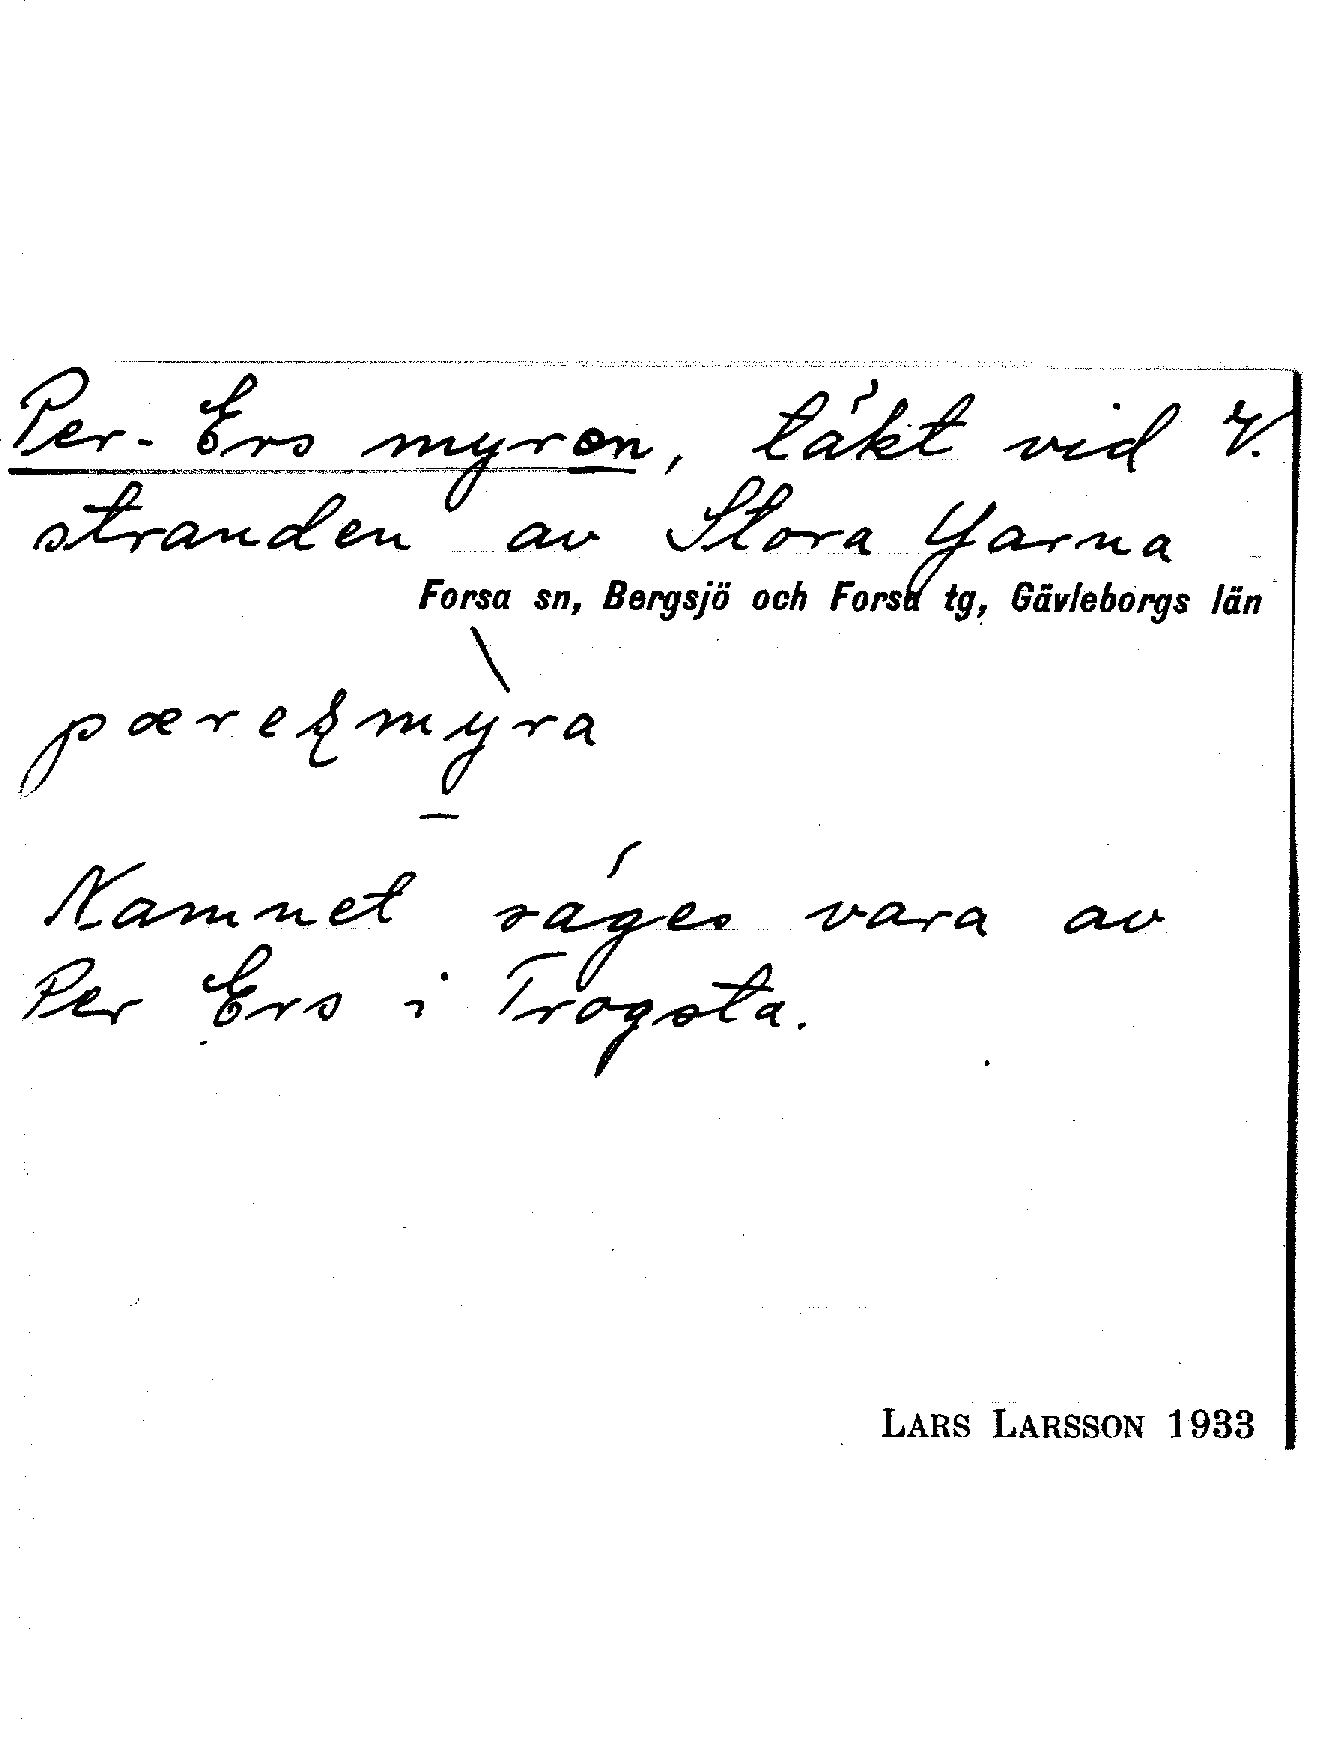 Per-Ers myran, täkt vid V.
stranden av Stora Yarna
Forsa sn, Bergsjö och Forsa tg, Gävleborgs län
Namnet säges vara av
Per Ers i Trogsta.
LARS LARSSON 1933